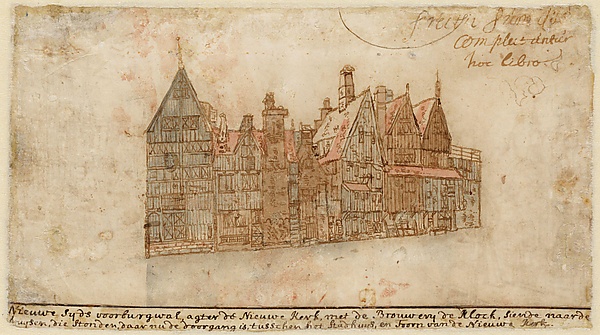 complect
hoc libro
Nieuwe Syds voorburgwal, agter de Nieuwe Kerk, met de Brouwery de Klock, siende naarde
huysen, die stonden daar nu de doorgang is, tusschen het Stadhuys, en Toorn van de Nieuwe Kerk.